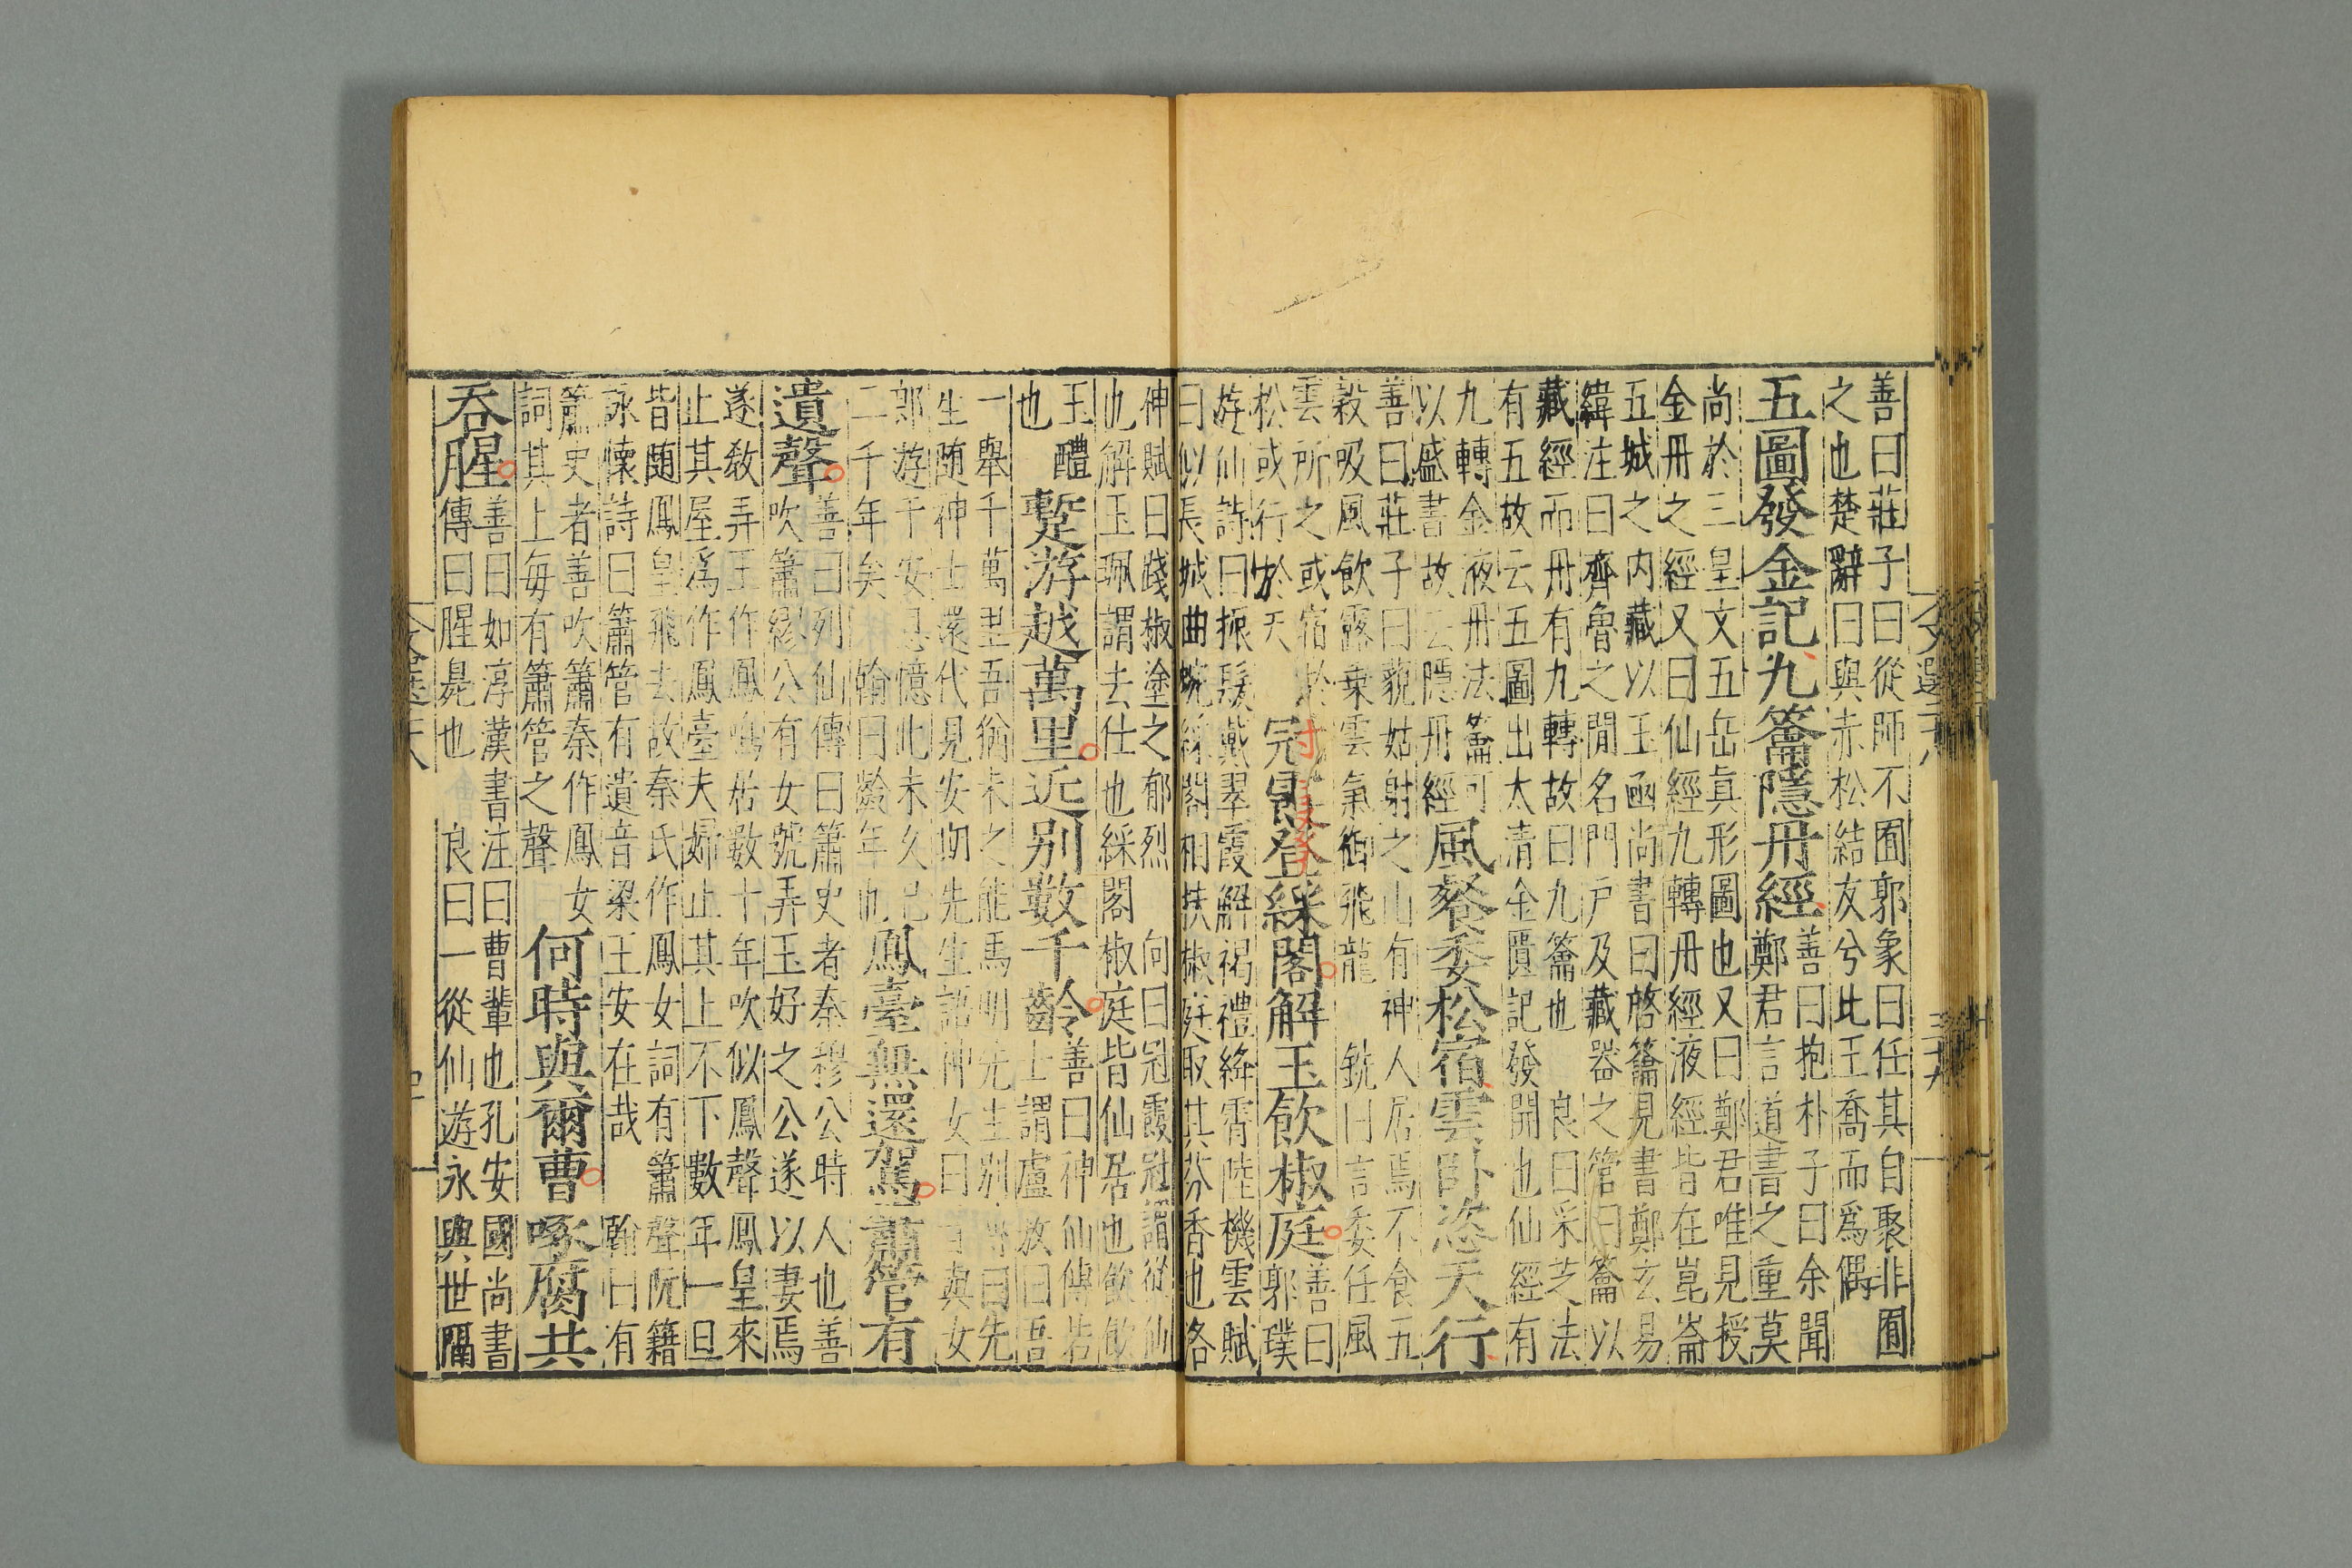 善曰莊子曰從師不囿郭象曰任其自聚非囿
之也楚辭曰與赤松結友兮此王喬而爲偶
五圖發金記九籥隱丹經
善曰抱朴子曰余聞
鄭君言道書之重莫
尚於三皇文五岳真形圖也又曰鄭君唯見授
金丹之經又曰仙經九轉丹經液經皆在崑崙
五城之内藏以玉函尚書曰啓籥見書鄭玄易
緯注曰齊魯之閒名門戶及藏器之管曰籥以
藏經而丹有九轉故曰九籥也 良曰采芝法
有五故云五圖出太清金匱記發開也仙經有
九轉金液丹法籥可
以盛書故云隱丹經
風餐委松宿雲卧恣天行
善曰莊子曰藐姑射之山有神人居焉不食五
穀吸風飲露乗雲氣御飛龍 銑曰言委任風
雲所之或宿於
松或行於天
冠霞登綵閣解玉飲椒庭
善曰
郭璞
遊仙詩曰振髮戴翠霞解褐禮絳霄陸機雲賦
曰似長城曲蜿綵閣相扶椒庭取其芬香也洛
神賦曰踐椒塗之郁烈 向曰冠霞冠謂從仙
也解玉珮謂去仕也綵閣 椒庭皆仙居也飲飲
玉醴
也
蹔游越萬里近别數千齡
善曰神仙傳若
士謂盧敖曰吾
一舉千萬里吾猶未之能馬明先生别曰先
生随神士還代見安期先生語神女曰昔與女
郎游于安息憶此未久已
二千年矣 翰曰齡年也
鳳臺無還駕簫管有
遺聲
善曰列仙傳曰簫史者秦穆公時人也善
吹簫繆公有女號弄玉好之公遂以妻焉
遂敎弄玉作鳳鳴居數十年吹似鳳聲鳳皇來
止其屋爲作鳳臺夫婦止其上不下數年一旦
皆随鳳皇飛去故秦氏作鳳女詞有簫聲阮籍
詠懐詩曰簫管有遺音梁王安在哉 翰曰有
簫史者善吹簫秦作鳳女
詞其上毎有簫管之聲
何時與爾曹啄腐共
吞腥
善曰如淳漢書注曰曹輩也孔安國尚書
傳曰腥臭也 良曰一從仙遊永與世隔